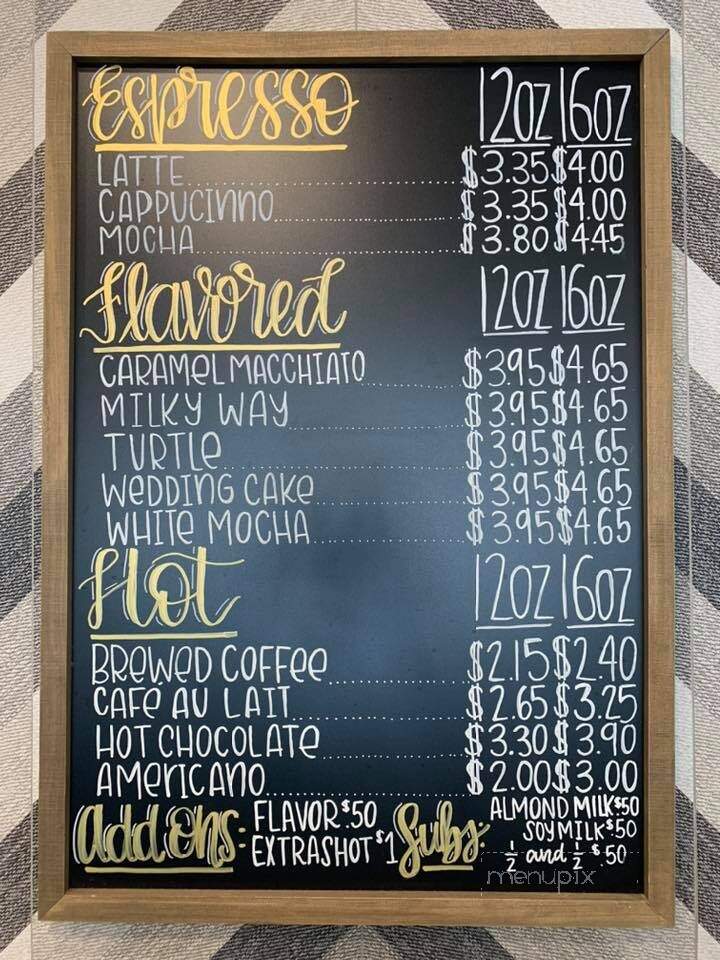 Espresso 12oz 16oz
LATTE $3.35 $4.00
CAPPUCINNO $3.35 $4.00
MOCHA $3.80 $4.45
Flavored 12oz 16oz
CARAMEL MACCHIATO $3.95 $4.65
MILKY WAY $3.95 $4.65
TURTLE $3.95 $4.65
WEDDING CAKE $3.95 $4.65
WHITE MOCHA $3.95 $4.65
Hot 12oz 16oz
BREWED COFFEE $2.15 $2.40
CAFE AU LAIT $2.65 $3.25
HOT CHOCOLATE $3.30 $3.90
AMERICANO $2.00 $3.00
Add Ons: FLAVOR $.50
EXTRA SHOT $1
Subs: ALMOND MILK $.50
SOY MILK $.50
½ and ½ $.50
menupix